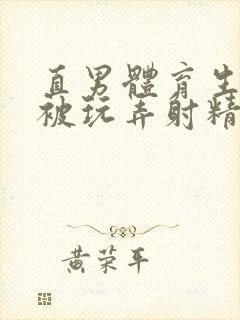 直男體育生
被玩弄射精
黄荣平